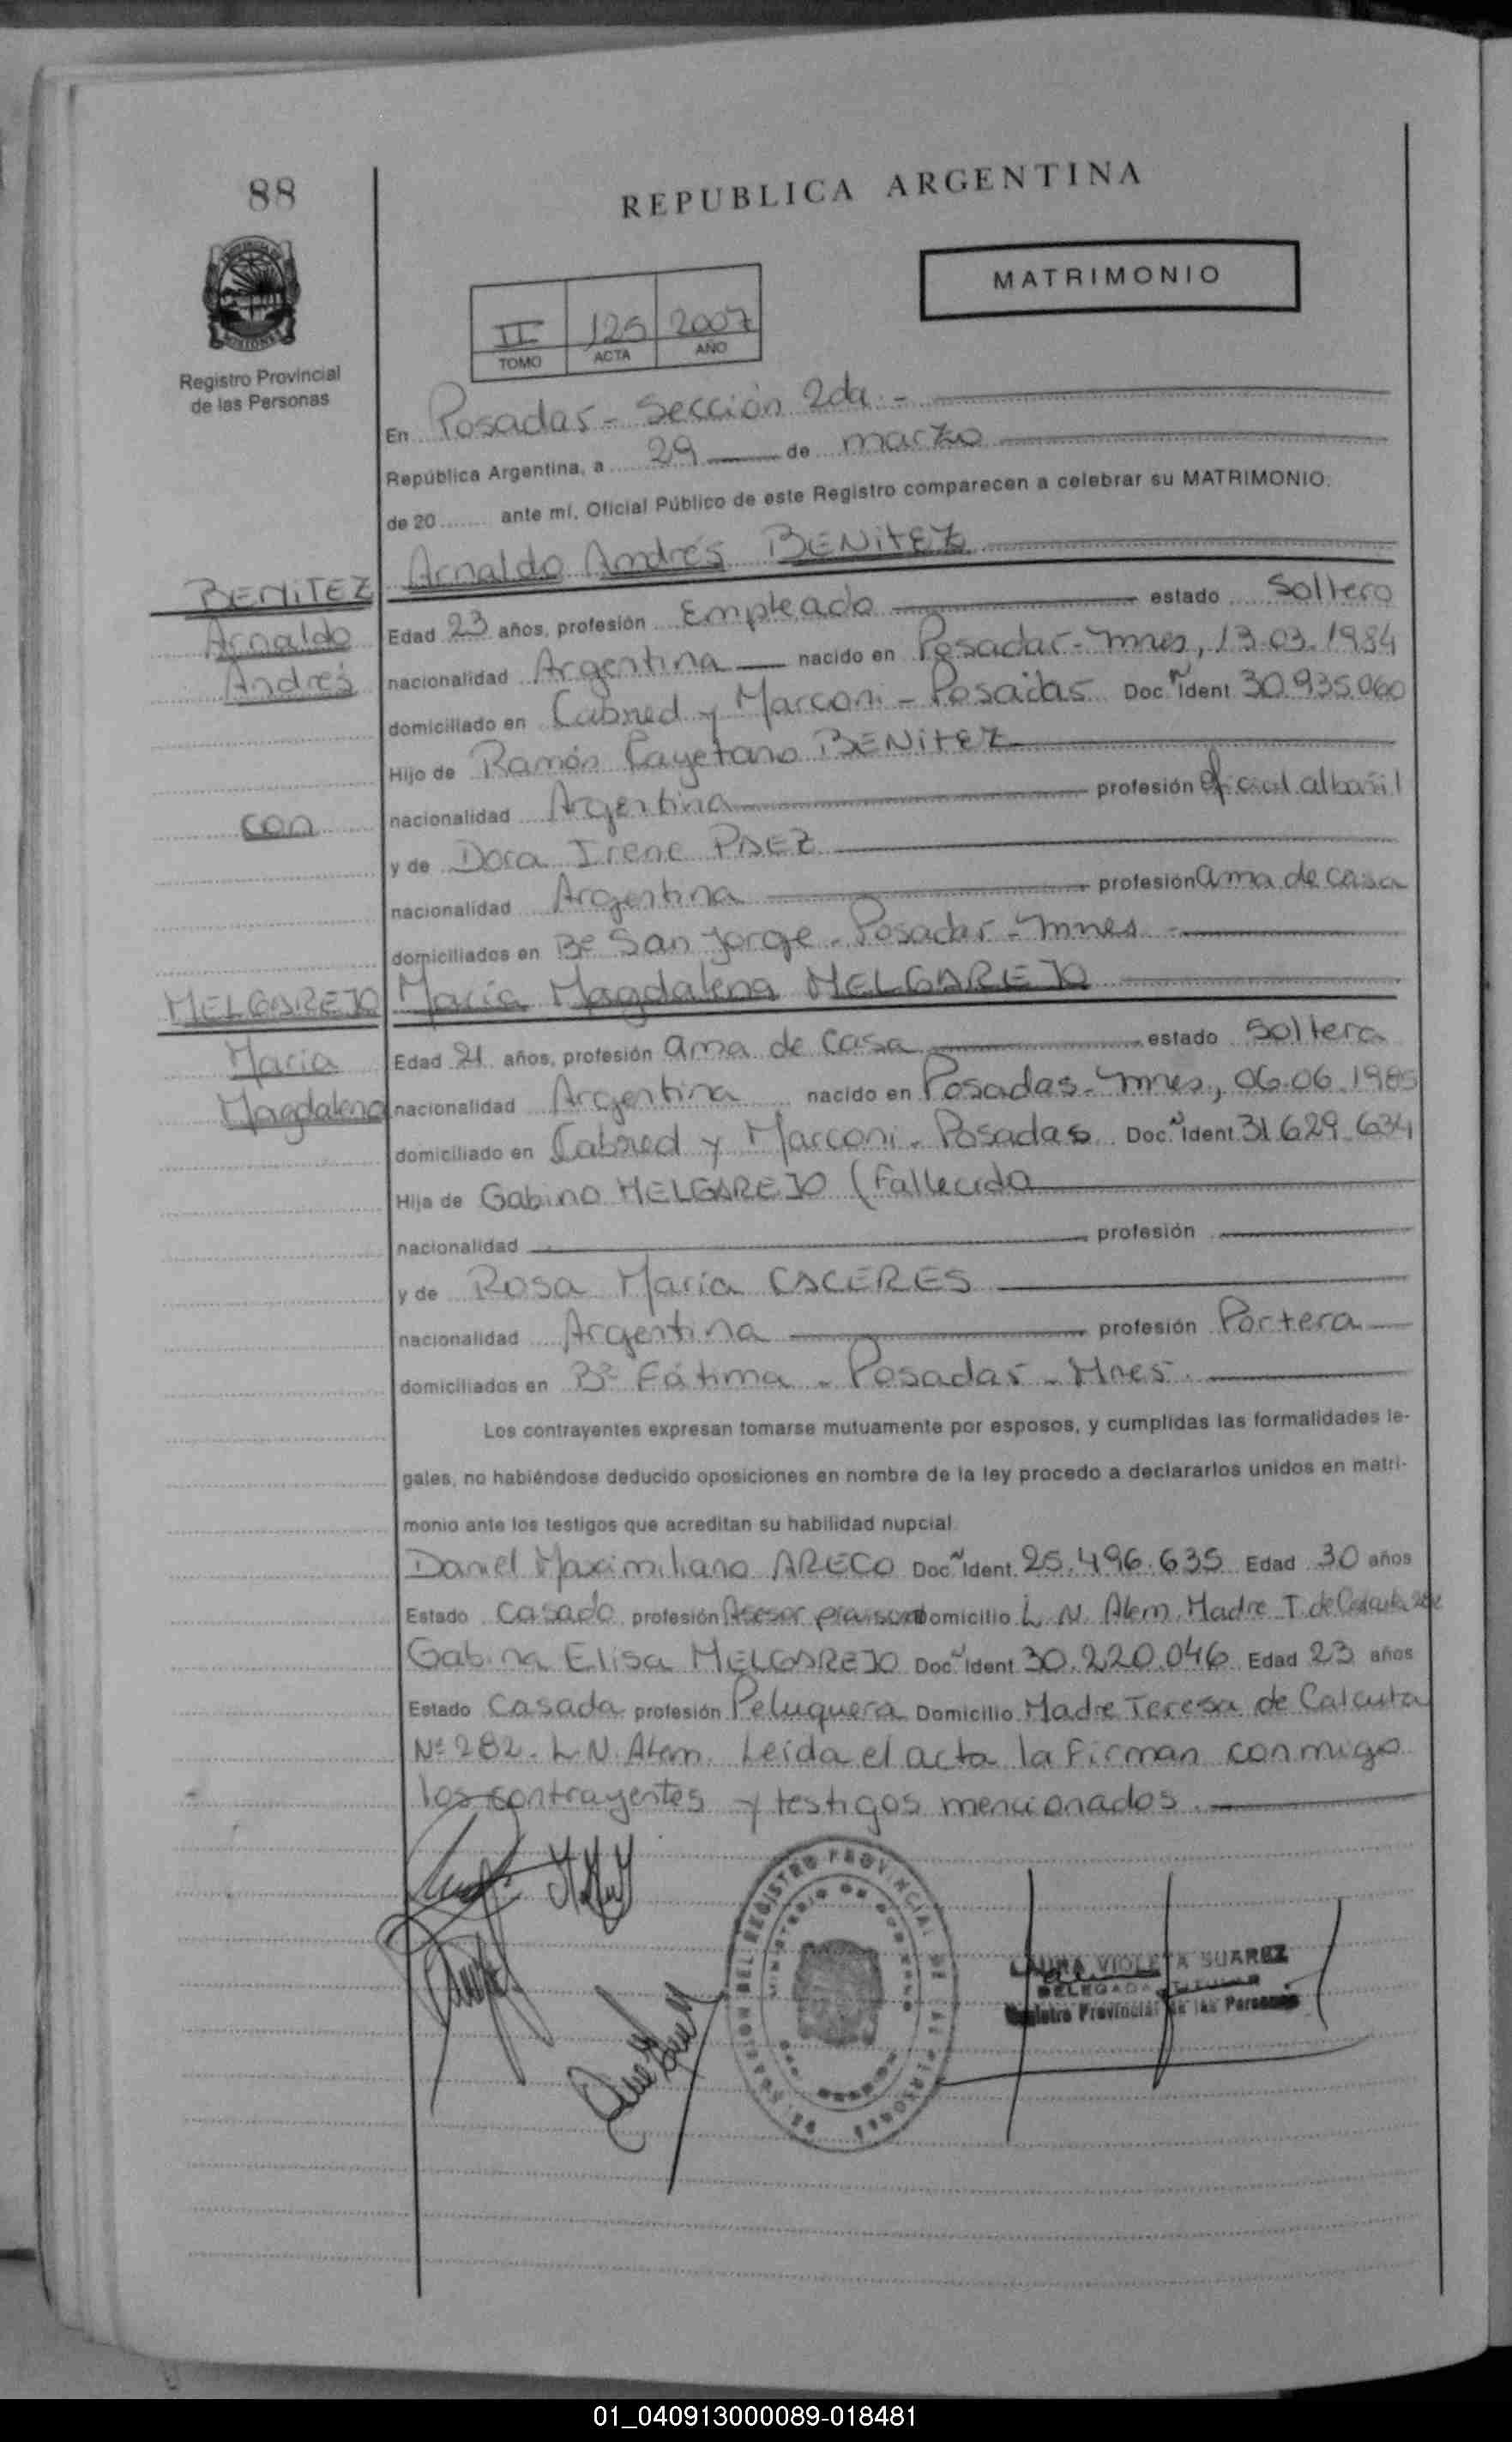 88
REPUBLICA ARGENTINA
MATRIMONIO
II 125 2007
TOMO ACTA AÑO
Registro Provincial
de las Personas
En Posadas - Sección 2da. -
República Argentina, a 29 de marzo
de 20 ante mí, Oficial Público de este Registro comparecen a celebrar su MATRIMONIO.
BENITEZ Arnaldo Andrés BENITEZ
Arnaldo Edad 23 años, profesión Empleado estado Soltero
Andrés nacionalidad Argentina nacido en Posadas - Mnes, 13.03.1984
domiciliado en Cabred y Marconi - Posadas Doc. Ident. 30.935.060
Hijo de Ramón Cayetano BENITEZ
con nacionalidad Argentina profesión oficial albañil
y de Dora Irene PAEZ
nacionalidad Argentina profesión ama de casa
domiciliados en Bº San Jorge - Posadas - Mnes -
MELGAREJO María Magdalena MELGAREJO
María Edad 21 años, profesión ama de casa estado Soltera
Magdalena nacionalidad Argentina nacido en Posadas - Mnes, 06.06.1985
domiciliado en Cabred y Marconi - Posadas Doc. Ident. 31.629.634
Hija de Gabino MELGAREJO (Fallecido
nacionalidad profesión
y de Rosa María CACERES
nacionalidad Argentina profesión Portera
domiciliados en Bº Fátima - Posadas - Mnes.
Los contrayentes expresan tomarse mutuamente por esposos, y cumplidas las formalidades le-
gales, no habiéndose deducido oposiciones en nombre de la ley procedo a declararlos unidos en matri-
monio ante los testigos que acreditan su habilidad nupcial.
Daniel Maximiliano ARECO Doc. Ident. 25.496.635 Edad 30 años
Estado Casado profesión Asesor Domicilio L. N. Alem. Madre T. de Calcuta 282
Gabina Elisa MELGAREJO Doc. Ident. 30.220.046 Edad 23 años
Estado Casada profesión Peluquera Domicilio Madre Teresa de Calcuta
Nº 282 - L. N. Alem. Leída el acta la firman conmigo
los contrayentes y testigos mencionados.
DEL REGISTRO PROVINCIAL DE LAS PERSONAS
MINISTERIO DE GOBIERNO
LAURA VIOLETA SUAREZ
DELEGADA TITULAR
Registro Provincial de las Personas
01_040913000089-018481